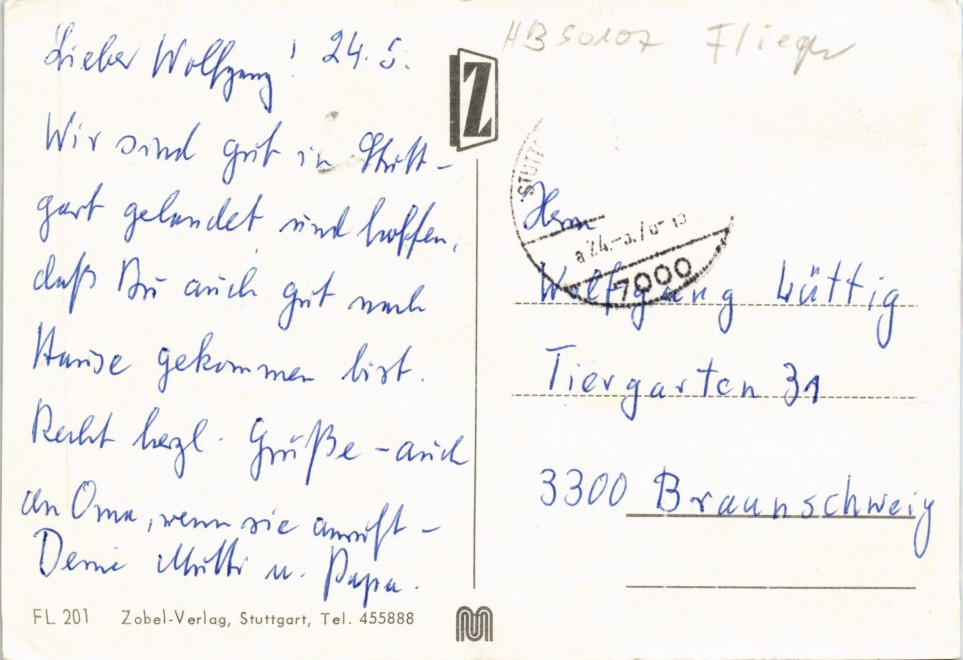 Lieber Wolfgang! 24.5.
Wir sind gut in Stutt-
gart gelandet und hoffen,
daß Du auch gut nach
Hause gekommen bist.
Recht herzl. Grüße - auch
an Oma, wenn sie anruft -
Deine Mutti u. Papa.
FL 201 Zobel-Verlag, Stuttgart, Tel. 455888
Z
HB 50107 Flieger
STUTT
7000
Herrn
Wolfgang Lüttig
Tiergarten 31
3300 Braunschweig